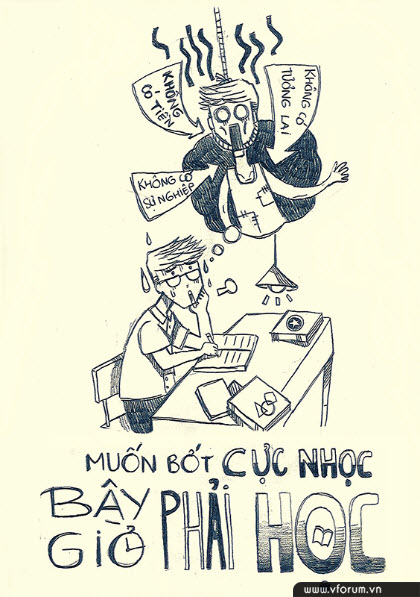 KHÔNG
CÓ TIỀN
KHÔNG CÓ
TƯƠNG LAI
KHÔNG CÓ
SỰ NGHIỆP
MUỐN BỚT CỰC NHỌC
BÂY GIỜ PHẢI HỌC
www.vforum.vn